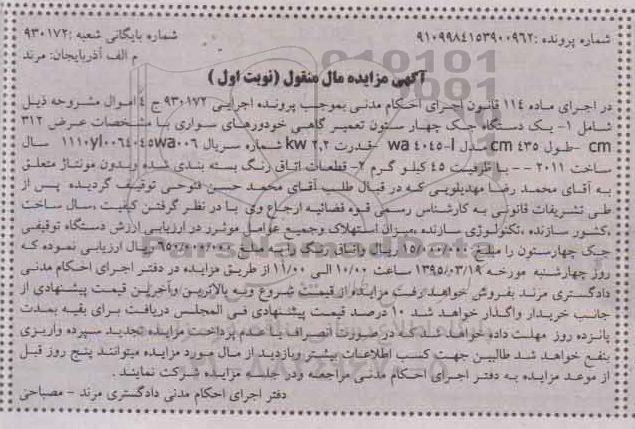 شماره پرونده :۹۱۰۹۹۸٤۱۵۳۹۰۰۹٦۲
شماره بایگانی شعبه :۹۳۰۱۷۲
م الف آذربایجان: مرند
آگهی مزایده مال منقول (نوبت اول )
در اجرای ماده ۱۱٤ قانون اجرای احکام مدنی بموجب پرونده اجرایی ۹۳۰۱۷۲ ج ٤ اموال مشروحه ذیل
شامل ۱- یک دستگاه جک چهار ستون تعمیر گاهی خودورهای سواری با مشخصات عرض ۳۱۲
cm -طول ٤۳۵ cm مدل wa ٤۰٤۵-I -قدرت ۲,۲ kw شماره سریال ۱۱۱۰yl۰۰٦٤۰٤۵wa۰۰٦ سال
ساخت ۲۰۱۱ -- با ظرفیت ٤۵ کیلو گرم ۲- قطعات اتاق رنگ بسته بندی شده وبدون مونتاژ متعلق
به آقای محمد رضا مهدیلویی که در قبال طلب آقای محمد حسن فتوحی توقیف گردیده پس از
طی تشریفات قانونی به کارشناس رسمی قوه قضائیه ارجاع وی با در نظر گرفتن کیفیت ،سال ساخت
،کشور سازنده ،تکنولوژی سازنده ،میزان استهلاک وجمیع عوامل موثردر ارزیابی ارزش دستگاه توقیفی
جک چهارستون را مبلغ ۱۵/۰۰۰/۰۰۰ ریال واتاق رنگ را به مبلغ ٦۵۰/۰۰۰/۰۰۰ ریال ارزیابی نموده که
روز چهارشنبه مورخه ۱۳۹۵/۰۳/۱۹ ساعت ۱۰/۰۰ الی ۱۱/۰۰ از طریق مزایده در دفتر اجرای احکام مدنی
دادگستری مرند بفروش خواهد رفت مزایده از قیمت شروع وبه بالاترین وآخرین قیمت پیشنهادی از
جانب خریدار واگذار خواهد شد ۱۰ درصد قیمت پیشنهادی فی المجلس دریافت برای بقیه بمدت
پانزده روز مهلت داده خواهد شد که در صورت انصراف یا عدم پرداخت مزایده تجدید سپرده واریزی
بنفع خواهد شد طالبین جهت کسب اطلاعات بیشتر وبازدید از مال مورد مزایده میتوانند پنج روز قبل
از موعد مزایده به دفتر اجرای احکام مدنی مراجعه ودر جلسه مزایده شرکت نمایند .
دفتر اجرای احکام مدنی دادگستری مرند - مصباحی